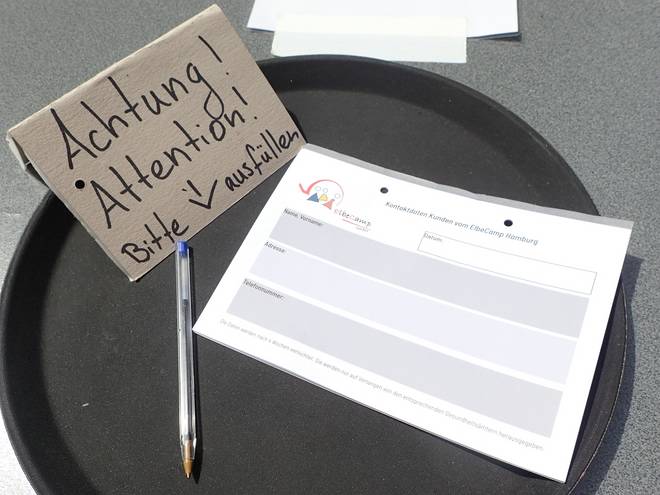 Achtung!
Attention!
Bitte ausfüllen
elbecamp
Kontaktdaten Kunden vom ElbeCamp Hamburg
Name, Vorname:
Datum:
Adresse:
Telefonnummer:
Die Daten werden nach 4 Wochen vernichtet. Sie werden nur auf Verlangen von den entsprechenden Gesundheitsämtern herausgegeben.